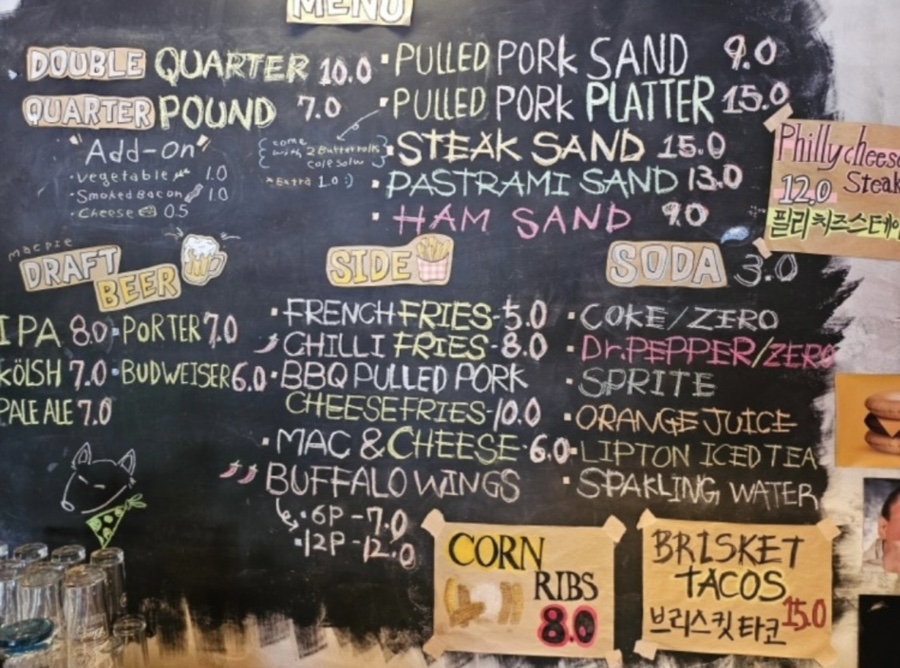 MENU
DOUBLE QUARTER 10.0
QUARTER POUND 7.0
"Add-On"
• vegetable 1.0
• Smoked Bacon 1.0
• Cheese 0.5
• PULLED PORK SAND 9.0
• PULLED PORK PLATTER 15.0
come with 2 Butter rolls
coleslaw
* Extra 1.0 :)
• STEAK SAND 15.0
• PASTRAMI SAND 13.0
• HAM SAND 9.0
Philly cheese
Steak
12.0
필리치즈스테이
macpie
DRAFT
BEER
IPA 8.0 • PORTER 7.0
KÖLSH 7.0 • BUDWEISER 6.0
PALE ALE 7.0
SIDE
• FRENCH FRIES - 5.0
CHILLI FRIES - 8.0
• BBQ PULLED PORK
CHEESE FRIES - 10.0
• MAC & CHEESE - 6.0
BUFFALO WINGS
• 6P - 7.0
• 12P - 12.0
SODA 3.0
• COKE/ZERO
• Dr. PEPPER/ZERO
• SPRITE
• ORANGE JUICE
• LIPTON ICED TEA
• SPAKLING WATER
CORN
RIBS
8.0
BRISKET
TACOS
15.0
브리스킷 타코